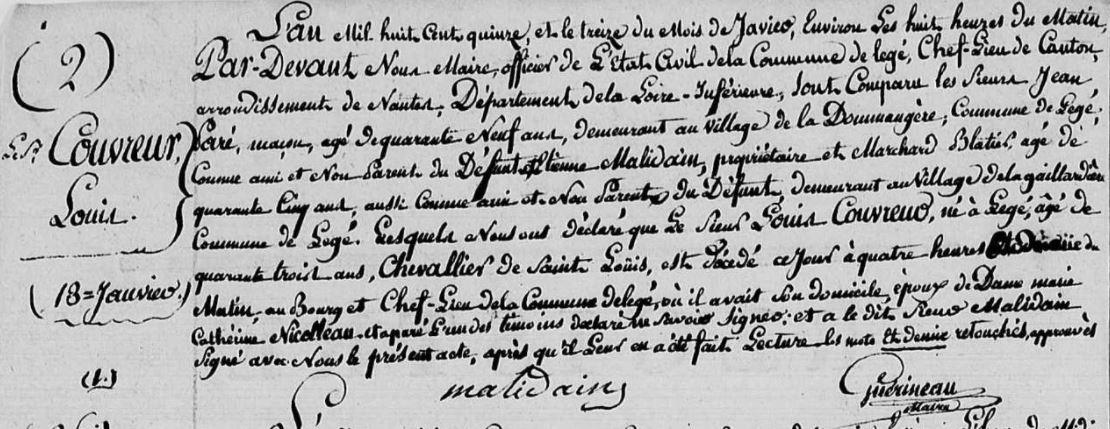 (2)
Le Sr. Couvreur,
Louis.
(18 = Janvier.)
(1.)
L'an Mil huit Cent quinze, et le treize du Mois de Janvier, Environ Les huit heures du Matin,
Par-Devant Nous Maire, officier de L'Etat Civil de la Commune de legé, Chef-Lieu de Canton,
arrondissement de Nantes, Département de la Loire-Inférieure, Sont Comparu les Sieurs Jean
Paré, maçon, agé de quarante Neuf ans, demeurant au village de la Doumangère, Commune de Legé,
Comme ami et Non Parent du Défunt et Etienne Malidain, propriétaire et Marchand Blatier, agé de
quarante Cinq ans, aussi Comme ami et Non Parent du Défunt, demeurant au Village de la gaillardière
Commune de Legé. Lesquels Nous ont déclaré que Le Sieur Louis Couvreur, né à Legé, âgé de
quarante trois ans, Chevallier de Saint Loüis, est Décédé ce Jour à quatre heures Et demie du
Matin, au Bourg et Chef-Lieu de la Commune de legé, où il avait Son domicile, époux de Dame marie
Catherine Nicolleau. et a paré L'un des temoins declaré ne Savoir Signer; et a le dit Sieur Malidain
Signé avec Nous le présent acte, après qu'il Leur en a été fait Lecture. les mots Et demie retouchés, approuvés
malidain
Guérineau
Maire